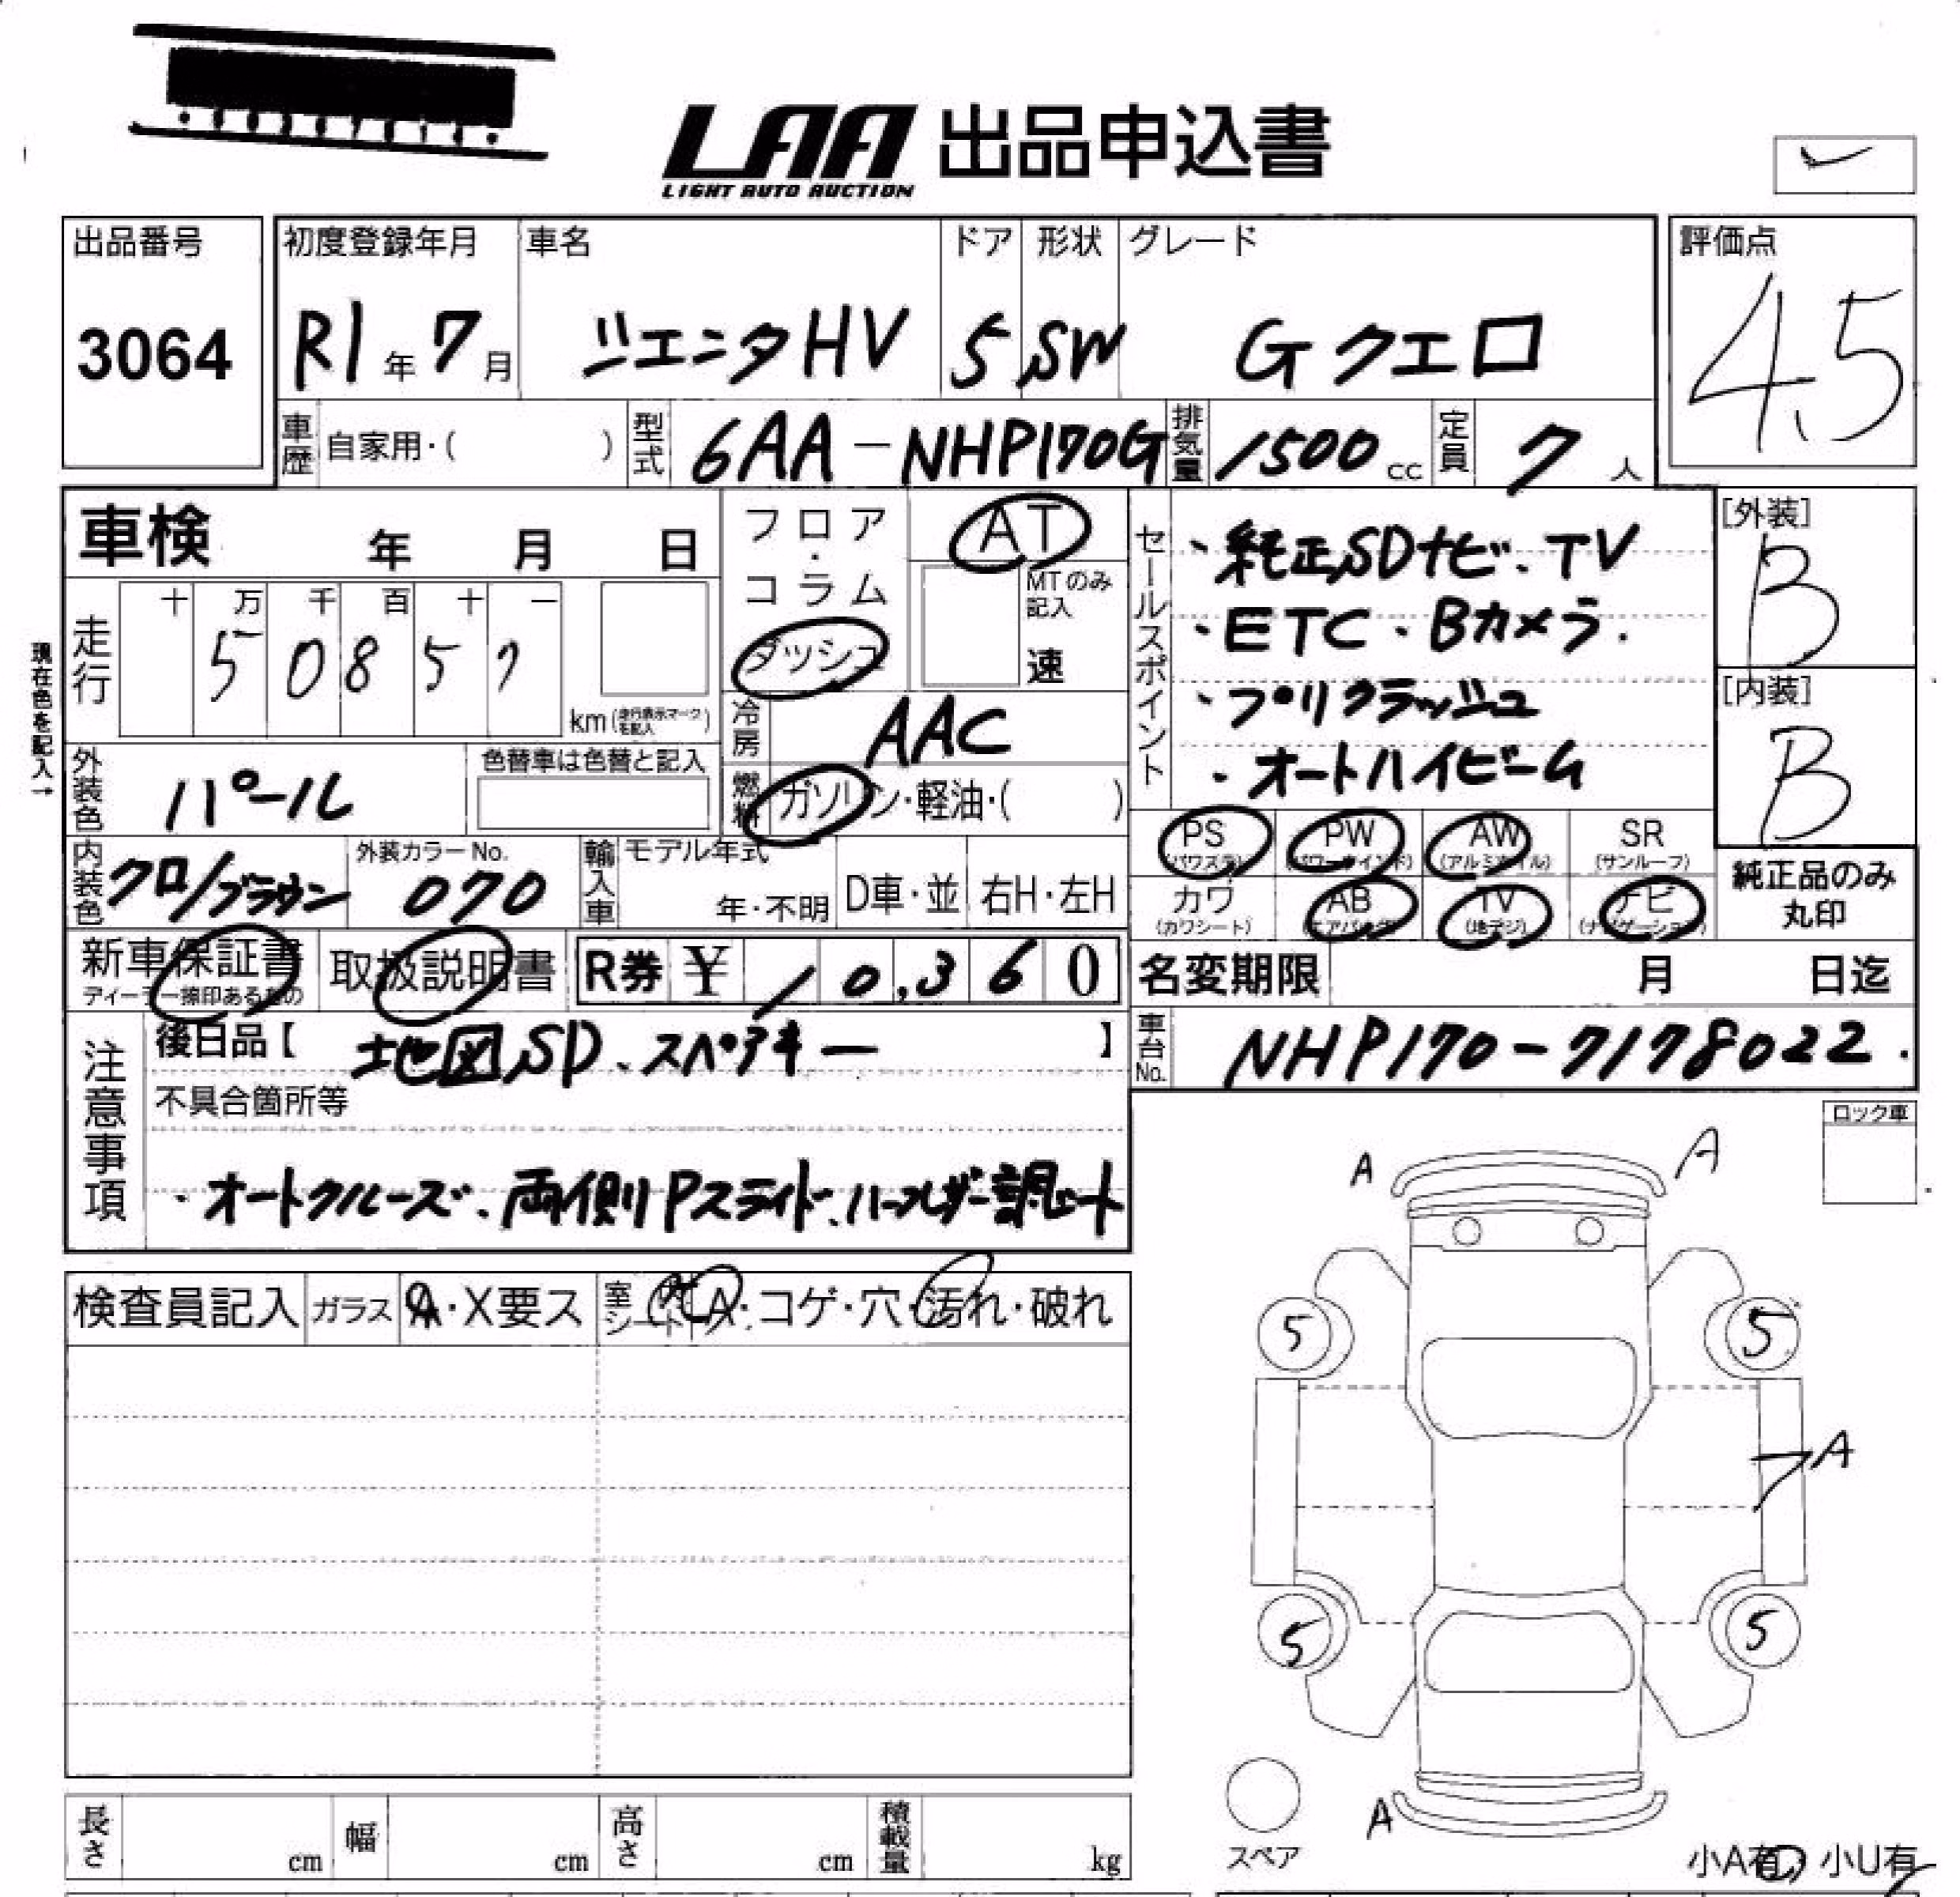 LAA 出品申込書
LIGHT AUTO AUCTION
出品番号 初度登録年月 車名 ドア 形状 グレード 評価点
3064 R1年 7月 ジエニタHV 5 SW Gクエロ 4.5
車歴 自家用・( ) 型式 6AA-NHP170G 排気量 1500cc 定員 7人
車検 年 月 日
フロア・コラム
ダッシュ
AT
MTのみ記入
速
走行
十 万 千 百 十 一
5 0 8 5 7
km (走行表示マークを記入)
現在色を記入→
冷房 AAC
燃料 ガソリン・軽油・( )
外装色 パール
色替車は色替と記入
内装色 クロ/ブラウン
外装カラーNo.
070
輸入車 モデル年式
年・不明 D車・並 右H・左H
セールスポイント
・純正SDナビ、TV
・ETC・Bカメラ.
・プリクラッシュ
・オートハイビーム
[外装]
B
[内装]
B
PS (パワステ) PW (パワーウインド) AW (アルミホイル) SR (サンルーフ)
カワ (カワシート) AB (エアバッグ) TV (地デジ) ナビ (ナビゲーション)
純正品のみ
丸印
新車保証書
ディーラー捺印あるもの
取扱説明書
R券 ¥ 10,360
名変期限 月 日迄
車台No. NHP170-7178022.
注意事項
後日品【 地図SD、スペアキー 】
不具合箇所等
・オートクルーズ、両側Pスライド、ハーフレザー調シート
ロック車
検査員記入 ガラス A・X要ス 室内シート A・コゲ・穴・汚れ・破れ
A A
5 5
A
5 5
A
スペア
小A有 小U有
長さ cm 幅 cm 高さ cm 積載量 kg